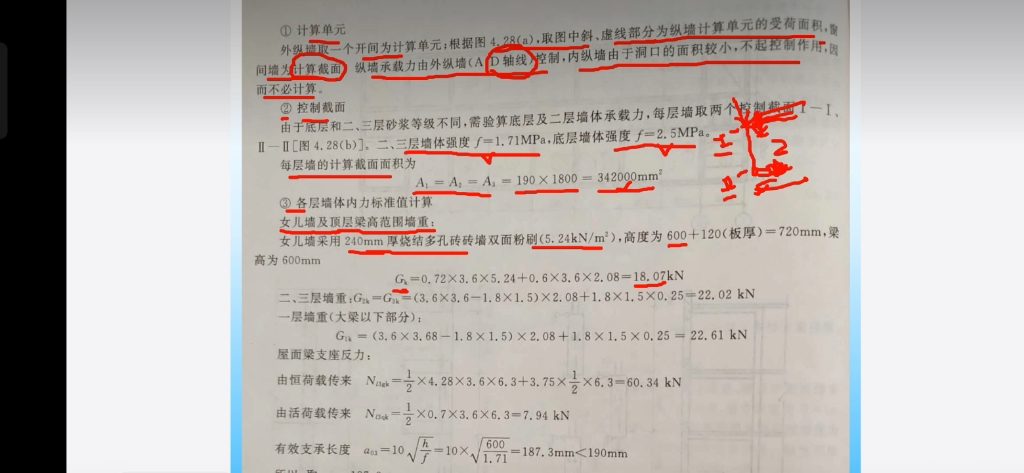 ① 计算单元
外纵墙取一个开间为计算单元;根据图4.28(a),取图中斜、虚线部分为纵墙计算单元的受荷面积,窗
间墙为计算截面。纵墙承载力由外纵墙(A、D轴线)控制,内纵墙由于洞口的面积较小,不起控制作用,因
而不必计算。
② 控制截面
由于底层和二、三层砂浆等级不同,需验算底层及二层墙体承载力,每层墙取两个控制截面Ⅰ—Ⅰ、
Ⅱ—Ⅱ[图4.28(b)]。二、三层墙体强度 f=1.71MPa,底层墙体强度 f=2.5MPa。
每层墙的计算截面面积为
A₁ = A₂ = A₃ = 190×1800 = 342000mm²
③ 各层墙体内力标准值计算
女儿墙及顶层梁高范围墙重:
女儿墙采用240mm厚烧结多孔砖砖墙双面粉刷(5.24kN/m²),高度为600+120(板厚)=720mm,梁
高为600mm
Gₖ=0.72×3.6×5.24+0.6×3.6×2.08=18.07kN
二、三层墙重:G₂ₖ=G₃ₖ=(3.6×3.6-1.8×1.5)×2.08+1.8×1.5×0.25=22.02 kN
一层墙重(大梁以下部分):
G₁ₖ = (3.6×3.68-1.8×1.5)×2.08+1.8×1.5×0.25 = 22.61 kN
屋面梁支座反力:
由恒荷载传来 Nl3gk=1/2×4.28×3.6×6.3+3.75×1/2×6.3=60.34 kN
由活荷载传来 Nl3qk=1/2×0.7×3.6×6.3=7.94 kN
有效支承长度 a₀₃=10√(h/f)=10×√(600/1.71)=187.3mm<190mm